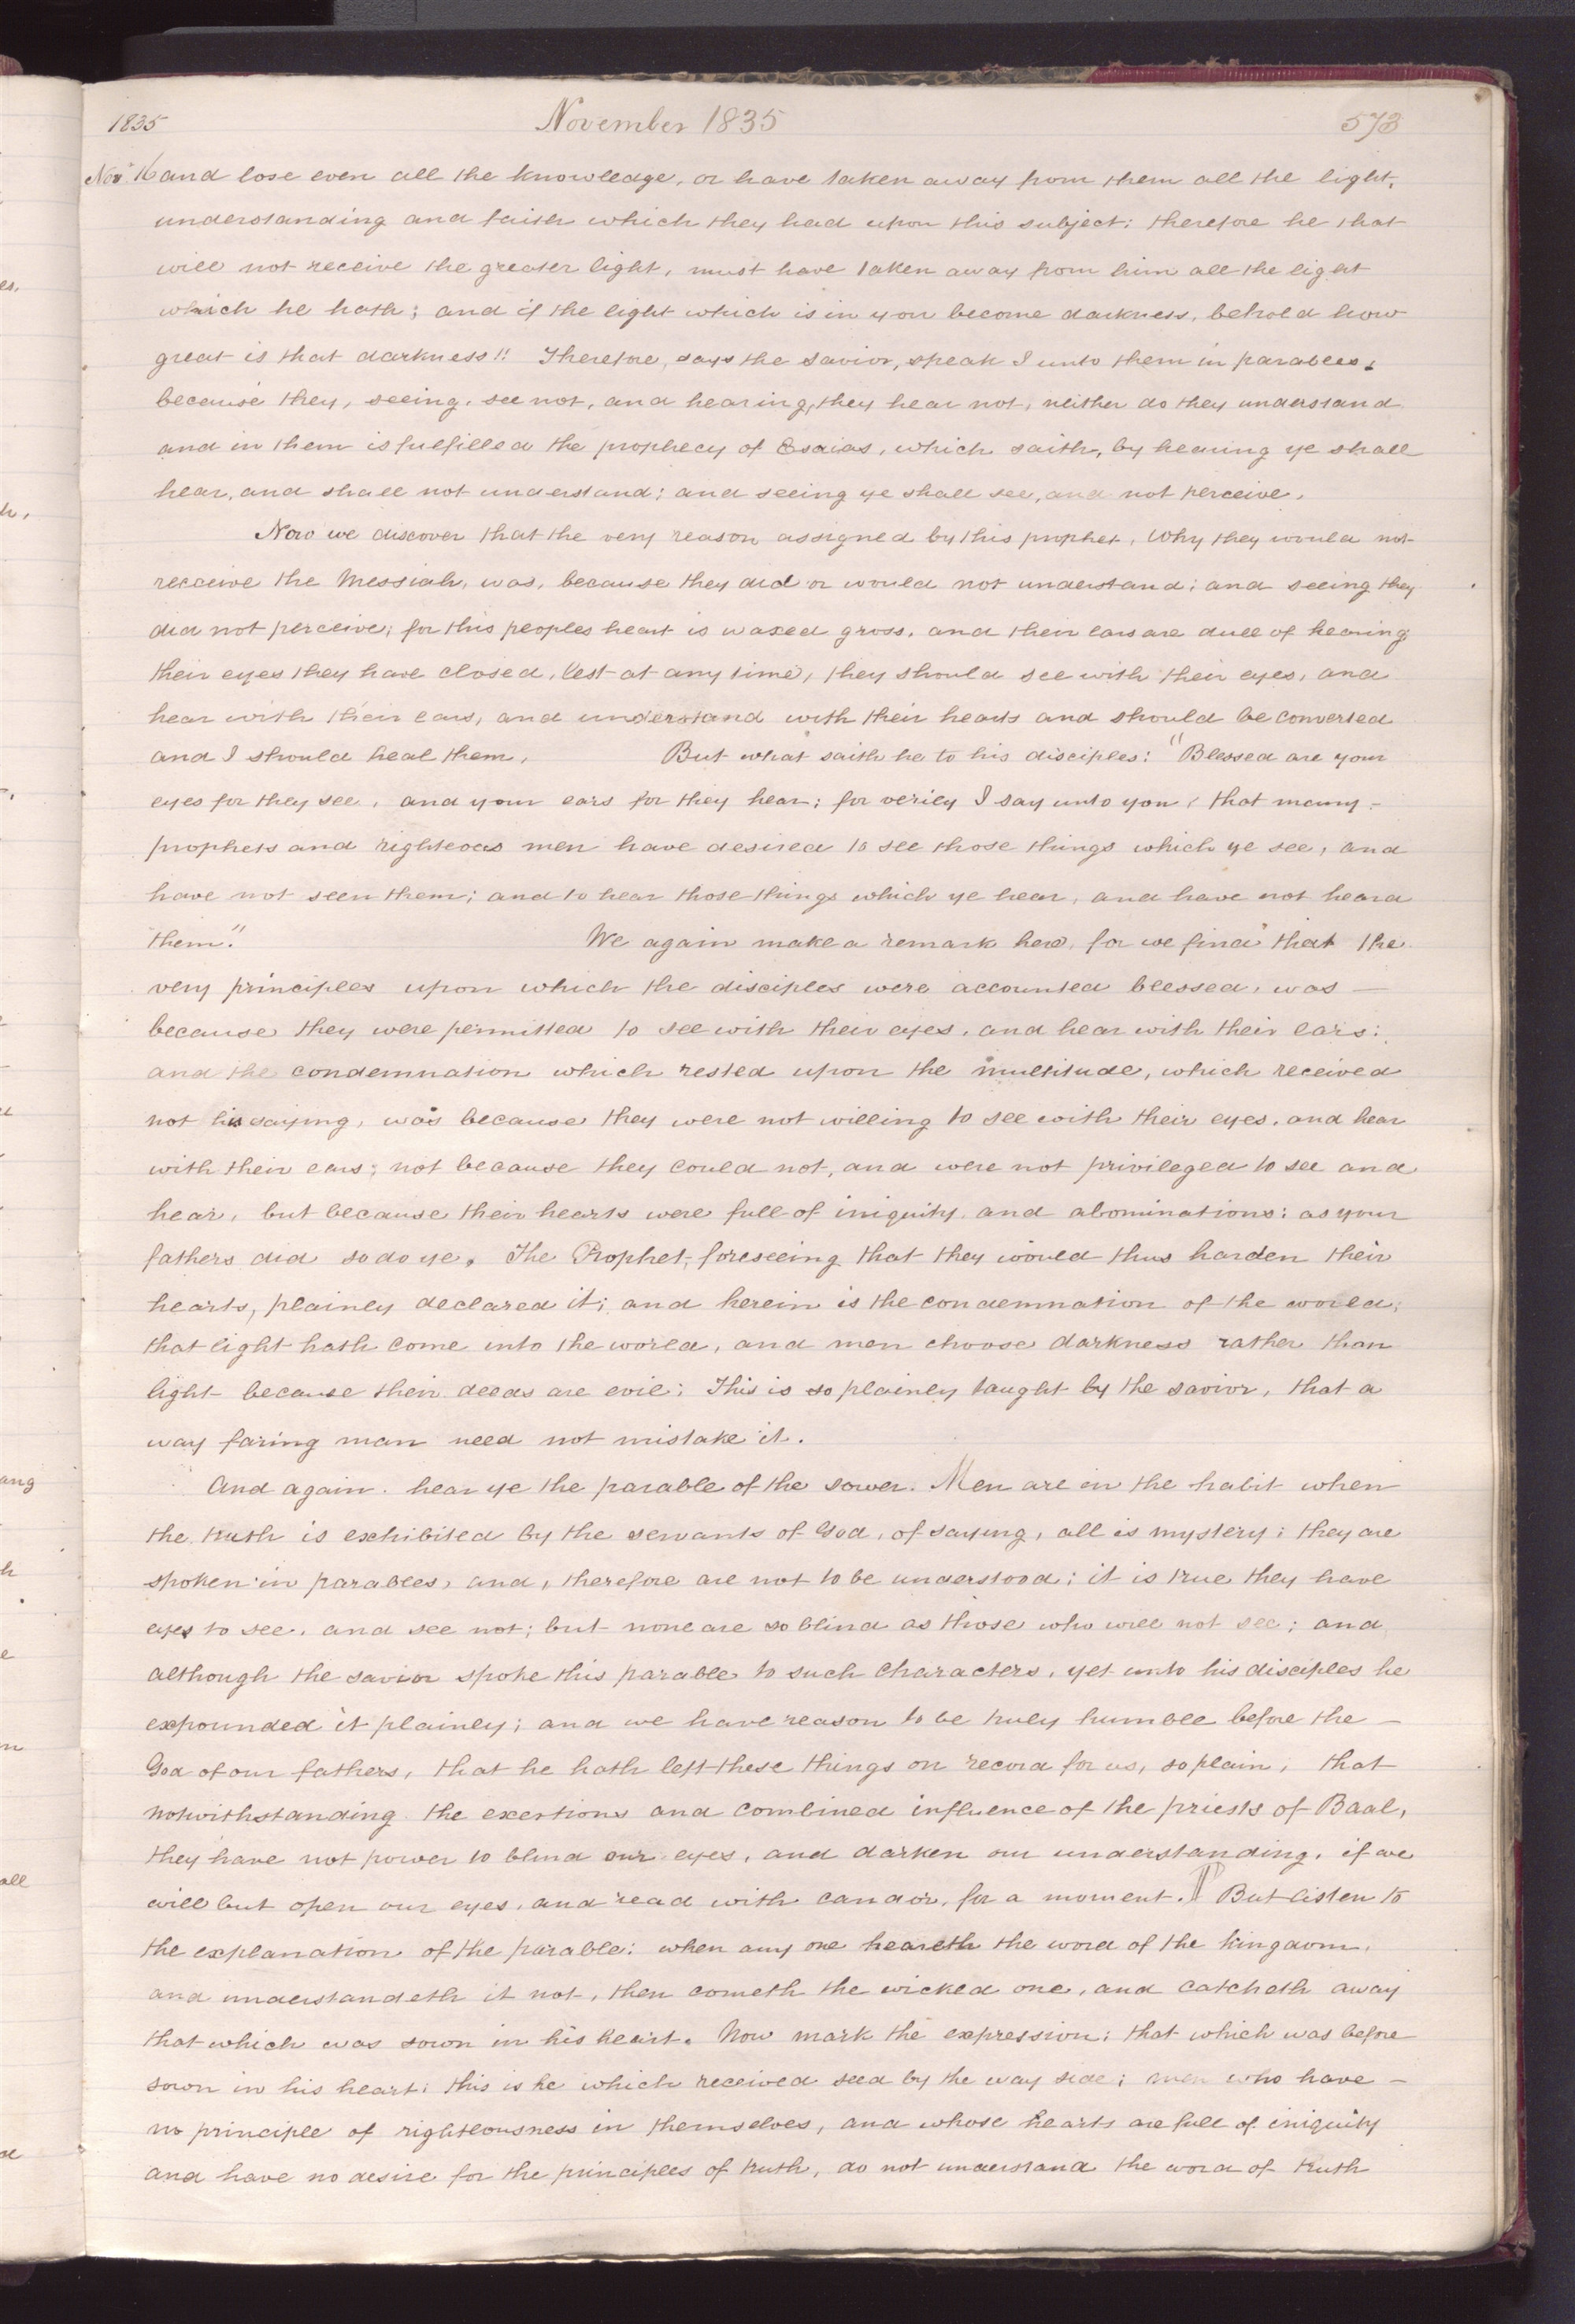 1835 November 1835 573
Nov 16 and lose even all the knowledge, or have taken away from them all the light,
understanding and faith which they had upon this subject: therefore he that
will not receive the greater light, must have taken away from him all the light
which he hath; and if the light which is in you become darkness, behold how
great is that darkness!! Therefore, says the Savior, speak I unto them in parables,
because they, seeing, see not, and hearing, they hear not, neither do they understand
and in them is fulfilled the prophecy of Esaias, which saith, by hearing ye shall
hear, and shall not understand; and seeing ye shall see, and not perceive.
Now we discover that the very reason assigned by this prophet, why they would not
receive the Messiah, was, because they did or would not understand; and seeing they
did not perceive; for this peoples heart is waxed gross, and their ears are dull of hearing
their eyes they have closed, lest at any time, they should see with their eyes, and
hear with their ears, and understand with their hearts and should be converted
and I should heal them. But what saith he to his disciples: "Blessed are your
eyes for they see, and your ears for they hear; for verily I say unto you, that many –
prophets and righteous men have desired to see those things which ye see, and
have not seen them; and to hear those things which ye hear, and have not heard
them." We again make a remark here, for we find that the
very principles upon which the disciples were accounted blessed, was —
because they were permitted to see with their eyes, and hear with their ears:
and the condemnation which rested upon the multitude, which received
not his saying, was because they were not willing to see with their eyes, and hear
with their ears; not because they could not, and were not privileged to see and
hear, but because their hearts were full of iniquity and abominations: as your
fathers did so do ye. The Prophet, foreseeing that they would thus harden their
hearts, plainly declared it; and herein is the condemnation of the world;
that light hath come into the world, and men choose darkness rather than
light because their deeds are evil: This is so plainly taught by the savior, that a
way faring man need not mistake it.
And again. hear ye the parable of the sower. Men are in the habit when
the truth is exhibited by the servants of God, of saying, all is mystery; they are
spoken in parables, and, therefore are not to be understood; it is true they have
eyes to see, and see not; but none are so blind as those who will not see; and
although the savior spoke this parable to such characters, yet unto his disciples he
expounded it plainly; and we have reason to be truly humble before the —
God of our fathers, that he hath left these things on record for us, so plain, that
notwithstanding the exertions and combined influence of the priests of Baal,
they have not power to blind our eyes, and darken our understanding, if we
will but open our eyes, and read with candor, for a moment. ¶ But listen to
the explanation of the parable: when any one heareth the word of the kingdom,
and understandeth it not, then cometh the wicked one, and catcheth away
that which was sown in his heart. Now mark the expression: that which was before
sown in his heart; this is he which received seed by the way side; men who have —
no principle of righteousness in themselves, and whose hearts are full of iniquity
and have no desire for the principles of truth, do not understand the word of truth